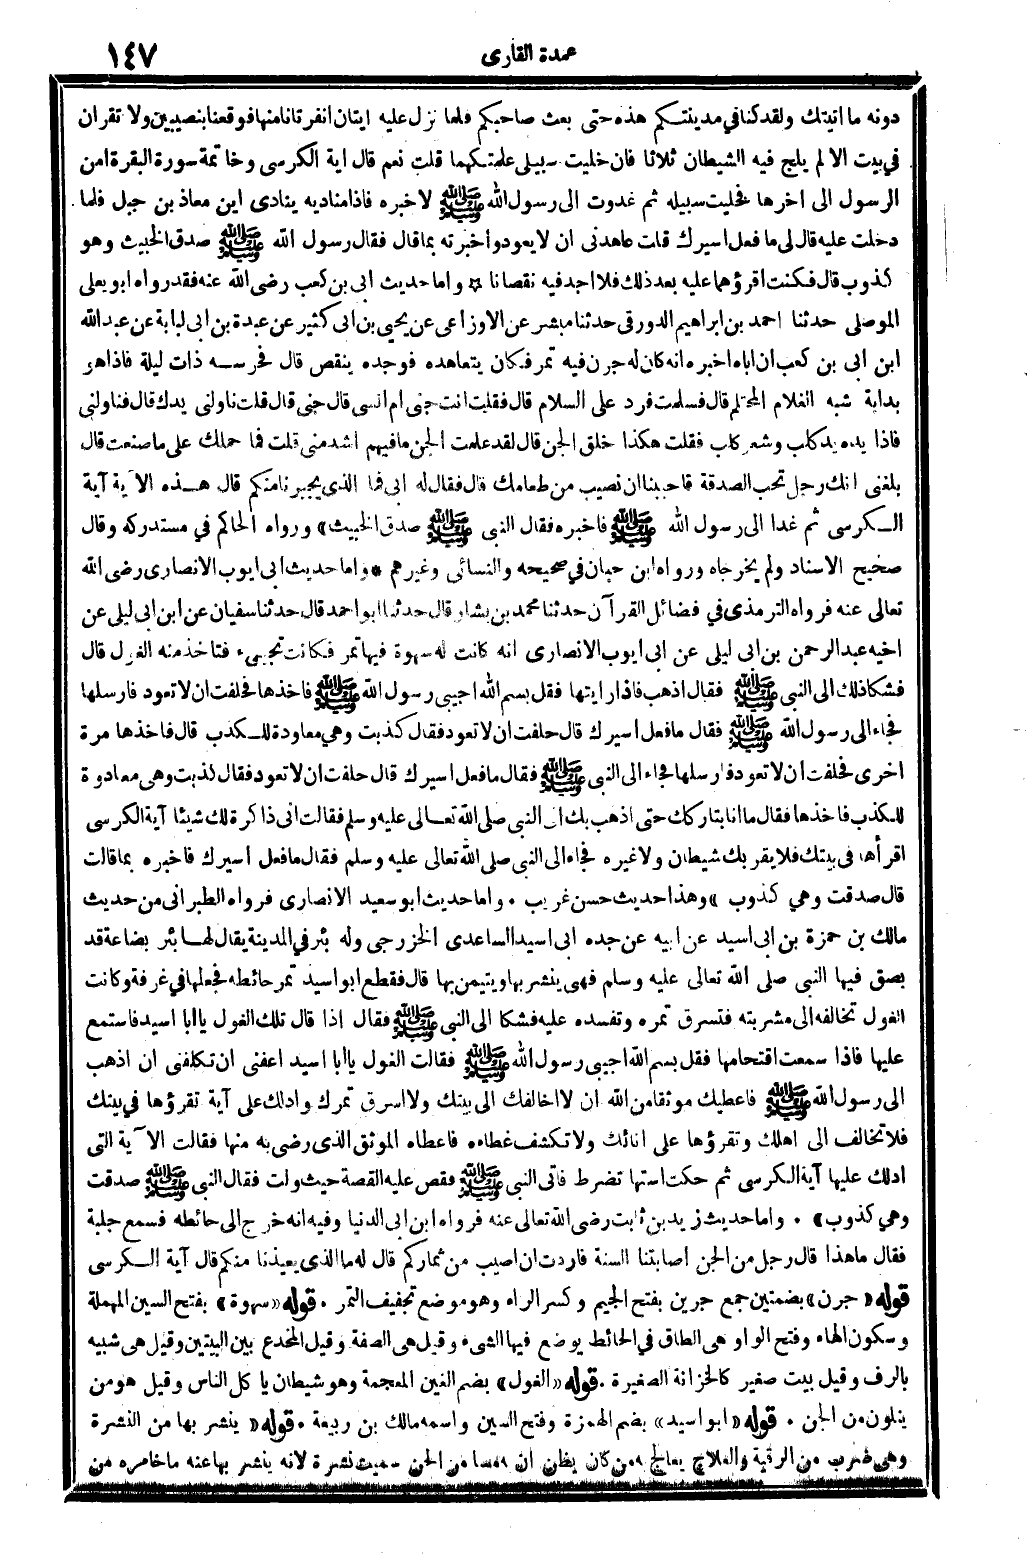 عمدة القارى ١٤٧
دونه ما اتيتك ولقد كنا في مدينتكم هذه حتى بعث صاحبكم فلما نزل عليه ايتان انفرتانا منها فوقعنا بنصيبين ولا تقران
في بيت الا لم يلج فيه الشيطان ثلاثا فان خليت سبيلى علمتكهما قلت نعم قال اية الكرسى وخاتمة سورة البقرة امن
الرسول الى اخرها فخليت سبيله ثم غدوت الى رسول الله ﷺ لاخبره فاذا مناديه ينادى اين معاذ بن جبل فلما
دخلت عليه قال لى ما فعل اسيرك قلت عاهدنى ان لا يعود واخبرته بما قال فقال رسول الله ﷺ صدق الخبيث وهو
كذوب قال فكنت اقرؤهما عليه بعد ذلك فلا اجد فيه نقصانا * واما حديث ابى بن كعب رضى الله عنه فقد رواه ابو يعلى
الموصلى حدثنا احمد بن ابراهيم الدورقى حدثنا مبشر عن الاوزاعى عن يحيى بن ابى كثير عن عبدة بن ابى لبابة عن عبد الله
ابن ابى بن كعب ان اباه اخبره انه كان له جرن فيه تمر فكان يتعاهده فوجده ينقص قال فحرسه ذات ليلة فاذا هو
بدابة شبه الغلام المحتلم قال فسلمت فرد على السلام قال فقلت انت جنى ام انسى قال جنى قال قلت ناولنى يدك قال فناولنى
فاذا يده يد كلب وشعر كلب فقلت هكذا خلق الجن قال لقد علمت الجن ما فيهم اشد منى قلت فما حملك على ما صنعت قال
بلغنى انك رجل تحب الصدقة فاحببنا ان نصيب من طعامك قال فقال له ابى فما الذى يجيرنا منكم قال هذه الآية آية
الكرسى ثم غدا الى رسول الله ﷺ فاخبره فقال النبى ﷺ صدق الخبيث» ورواه الحاكم في مستدركه وقال
صحيح الاسناد ولم يخرجاه ورواه ابن حبان في صحيحه والنسائى وغيرهم * واما حديث ابى ايوب الانصارى رضى الله
تعالى عنه فرواه الترمذى في فضائل القرآن حدثنا محمد بن بشار قال حدثنا ابو احمد قال حدثنا سفيان عن ابن ابى ليلى عن
اخيه عبد الرحمن بن ابى ليلى عن ابى ايوب الانصارى انه كانت له سهوة فيها تمر فكانت تجىء فتاخذ منه الغول قال
فشكا ذلك الى النبى ﷺ فقال اذهب فاذا رايتها فقل بسم الله اجيبى رسول الله ﷺ فاخذها فحلفت ان لا تعود فارسلها
فجاء الى رسول الله ﷺ فقال ما فعل اسيرك قال حلفت ان لا تعود فقال كذبت وهي معاودة للكذب قال فاخذها مرة
اخرى فحلفت ان لا تعود فارسلها فجاء الى النبى ﷺ فقال ما فعل اسيرك قال حلفت ان لا تعود فقال كذبت وهى معاودة
للكذب فاخذها فقال ما انا بتاركك حتى اذهب بك الى النبى صلى الله تعالى عليه وسلم فقالت انى ذاكرة لك شيئا آية الكرسى
اقرأها فى بيتك فلا يقربك شيطان ولا غيره فجاء الى النبى صلى الله تعالى عليه وسلم فقال ما فعل اسيرك فاخبره بما قالت
قال صدقت وهي كذوب» وهذا حديث حسن غريب . واما حديث ابو سعيد الانصارى فرواه الطبرانى من حديث
مالك بن حمزة بن ابى اسيد عن ابيه عن جده ابى اسيد الساعدى الخزرجى وله بئر في المدينة يقال لها بئر بضاعة قد
بصق فيها النبى صلى الله تعالى عليه وسلم فهى ينشر بها ويتيمن بها قال فقطع ابو اسيد تمر حائطه فجعلها في غرفة وكانت
الغول تخالفه الى مشربته فتسرق تمره وتفسده عليه فشكا الى النبى ﷺ فقال اذا قال تلك الغول يا ابا اسيد فاستمع
عليها فاذا سمعت اقتحامها فقل بسم الله اجيبى رسول الله ﷺ فقالت الغول يا ابا اسيد اعفنى ان تكلفنى ان اذهب
الى رسول الله ﷺ فاعطيك موثقا من الله ان لا اخالفك الى بيتك ولا اسرق تمرك وادلك على آية تقرؤها في بيتك
فلا تخالف الى اهلك وتقرؤها على انائك ولا تكشف غطاءه فاعطاه الموثق الذى رضى به منها فقالت الآية التى
ادلك عليها آية الكرسى ثم حكت استها تضرط فاتى النبى ﷺ فقص عليه القصة حيث ولت فقال النبى ﷺ صدقت
وهي كذوب» . واما حديث زيد بن ثابت رضى الله تعالى عنه فرواه ابن ابى الدنيا وفيه انه خرج الى حائطه فسمع جلبة
فقال ما هذا قال رجل من الجن اصابتنا السنة فاردت ان اصيب من ثماركم قال له ما الذى يعيذنا منكم قال آية الكرسى
قوله «جرن» بضمتين جمع جرين بفتح الجيم وكسر الراء وهو موضع تجفيف التمر . قوله «سهوة» بفتح السين المهملة
وسكون الهاء وفتح الواو هى الطاق في الحائط يوضع فيها الشىء وقيل هى الصفة وقيل المخدع بين البيتين وقيل هى شبيه
بالرف وقيل بيت صغير كالخزانة الصغيرة . قوله «الغول» بضم الغين المعجمة وهو شيطان ياكل الناس وقيل هو من
يتلون من الجن . قوله «ابو اسيد» بضم الهمزة وفتح السين واسمه مالك بن ربيعة . قوله «ينشر بها من النشرة
وهى ضرب من الرقية والعلاج يعالج به من كان يظن ان به مسا من الجن سميت نشرة لانه ينشر بها عنه ما خامره من